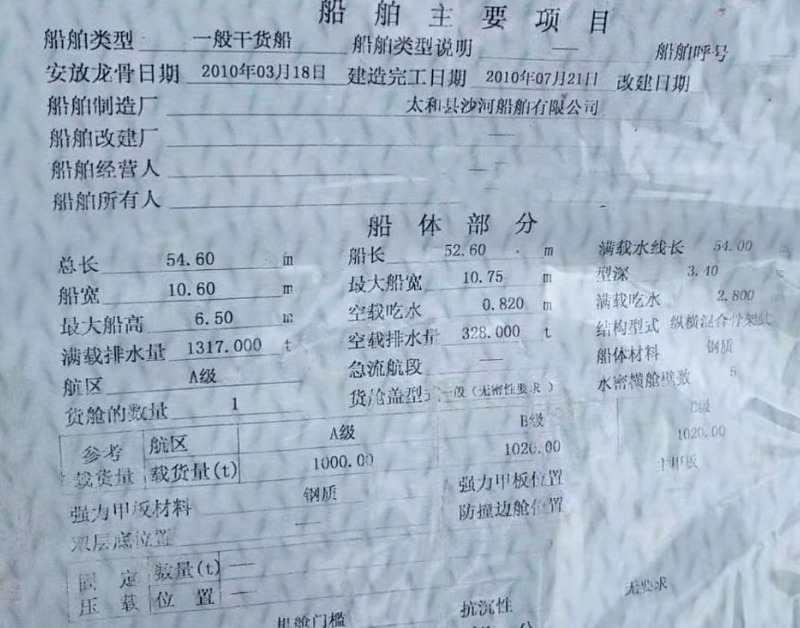 船舶主要项目
船舶类型 一般干货船 船舶类型说明 — 船舶呼号
安放龙骨日期 2010年03月18日 建造完工日期 2010年07月21日 改建日期
船舶制造厂 太和县沙河船舶有限公司
船舶改建厂 —
船舶经营人 —
船舶所有人
船体部分
总长 54.60 m 船长 52.60 m 满载水线长 54.00
船宽 10.60 m 最大船宽 10.75 m 型深 3.40
最大船高 6.50 m 空载吃水 0.820 m 满载吃水 2.800
满载排水量 1317.000 t 空载排水量 328.000 t 结构型式 纵横混合骨架式
航区 A级 急流航段 — 船体材料 钢质
货舱的数量 1 货舱盖型式 一般（无密性要求） 水密横舱壁数 5
参考载货量 航区 A级 B级 C级
载货量(t) 1000.00 1020.00 1020.00
强力甲板材料 钢质 强力甲板位置 主甲板
双层底位置 — 防撞边舱位置
固定压载 数量(t) —
位置 — 无要求
机舱门槛 抗沉性